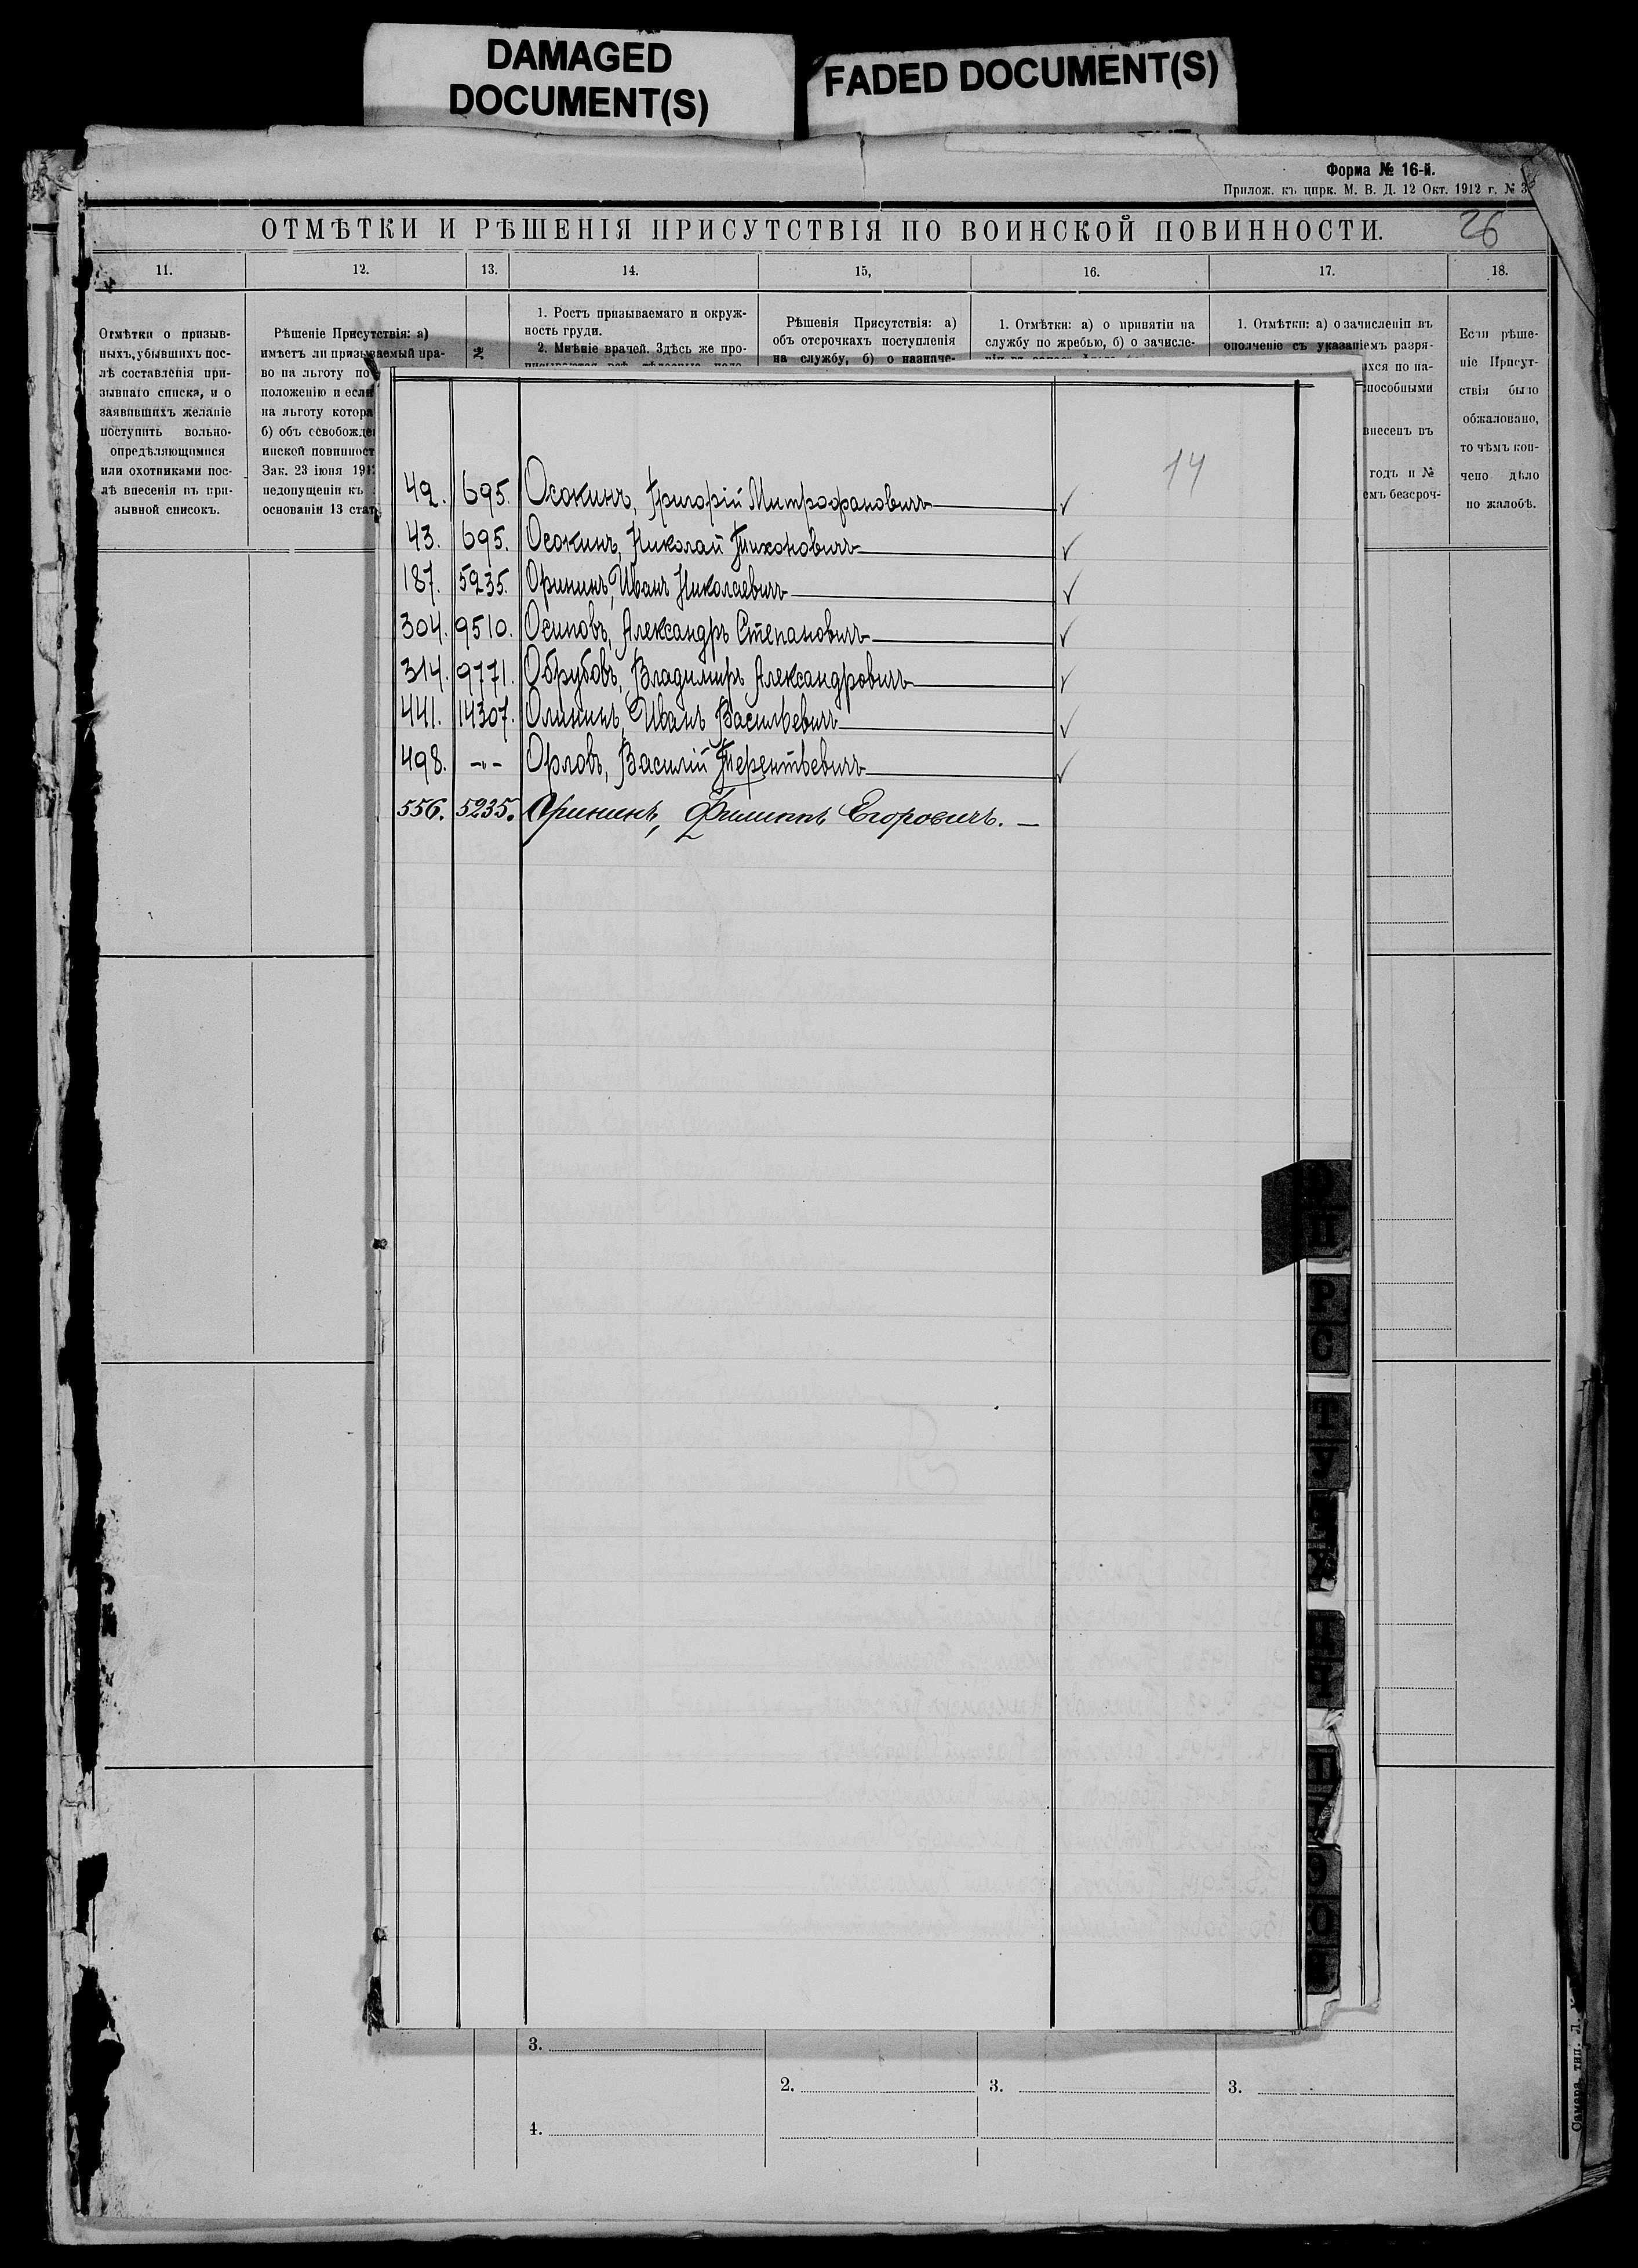 DAMAGED
DOCUMENT(S)
FADED DOCUMENT(S)
Форма № 16-й.
Прилож. къ цирк. М. В. Д. 12 Окт. 1912 г. №
ОТМѢТКИ И РѢШЕНІЯ ПРИСУТСТВІЯ ПО ВОИНСКОЙ ПОВИННОСТИ.
26
11. 12. 13. 14. 15, 16. 17. 18.
Отмѣтки о призыв-
ныхъ, убывшихъ пос-
лѣ составленія при-
зывнаго списка, и о
заявившихъ желаніе
поступить вольно-
опредѣляющимися
или охотниками пос-
лѣ внесенія въ при-
зывной списокъ.
Рѣшеніе Присутствія: а)
имѣетъ ли призываемый пра-
во на льготу по
положенію и если
на льготу котора
б) объ освобожде
инской повинност
Зак. 23 іюня 191
недопущеніи къ
основаніи 13 стат
№
1. Ростъ призываемаго и окруж-
ность груди.
2. Мнѣніе врачей. Здѣсь же про-
Рѣшенія Присутствія: а)
объ отсрочкахъ поступленія
на службу, б) о назначе-
1. Отмѣтки: а) о принятіи на
службу по жребью, б) о зачисле-
1. Отмѣтки: а) о зачисленіи въ
ополченіе съ указаніемъ разря-
ихся по на-
способными
внесенъ въ
годъ и №
емъ безсроч-
Если рѣше-
ніе Присут-
ствія было
обжаловано,
то чѣмъ кон-
чено дѣло
по жалобѣ.
14
42. 695. Осокинъ, Григорій Митрофановичъ ✓
43. 695. Осокинъ, Николай Тихоновичъ ✓
187. 5235. Орининъ, Иванъ Николаевичъ ✓
304. 9510. Осиповъ, Александръ Степановичъ ✓
314. 9771. Обрубовъ, Владимиръ Александровичъ ✓
441. 14307. Олининъ, Иванъ Васильевичъ ✓
498. -"- Орловъ, Василій Терентьевичъ ✓
556. 5235. Орининъ, Филиппъ Егоровичъ. —
3.
2. 3. 3.
4.
Самара, тип. Л.